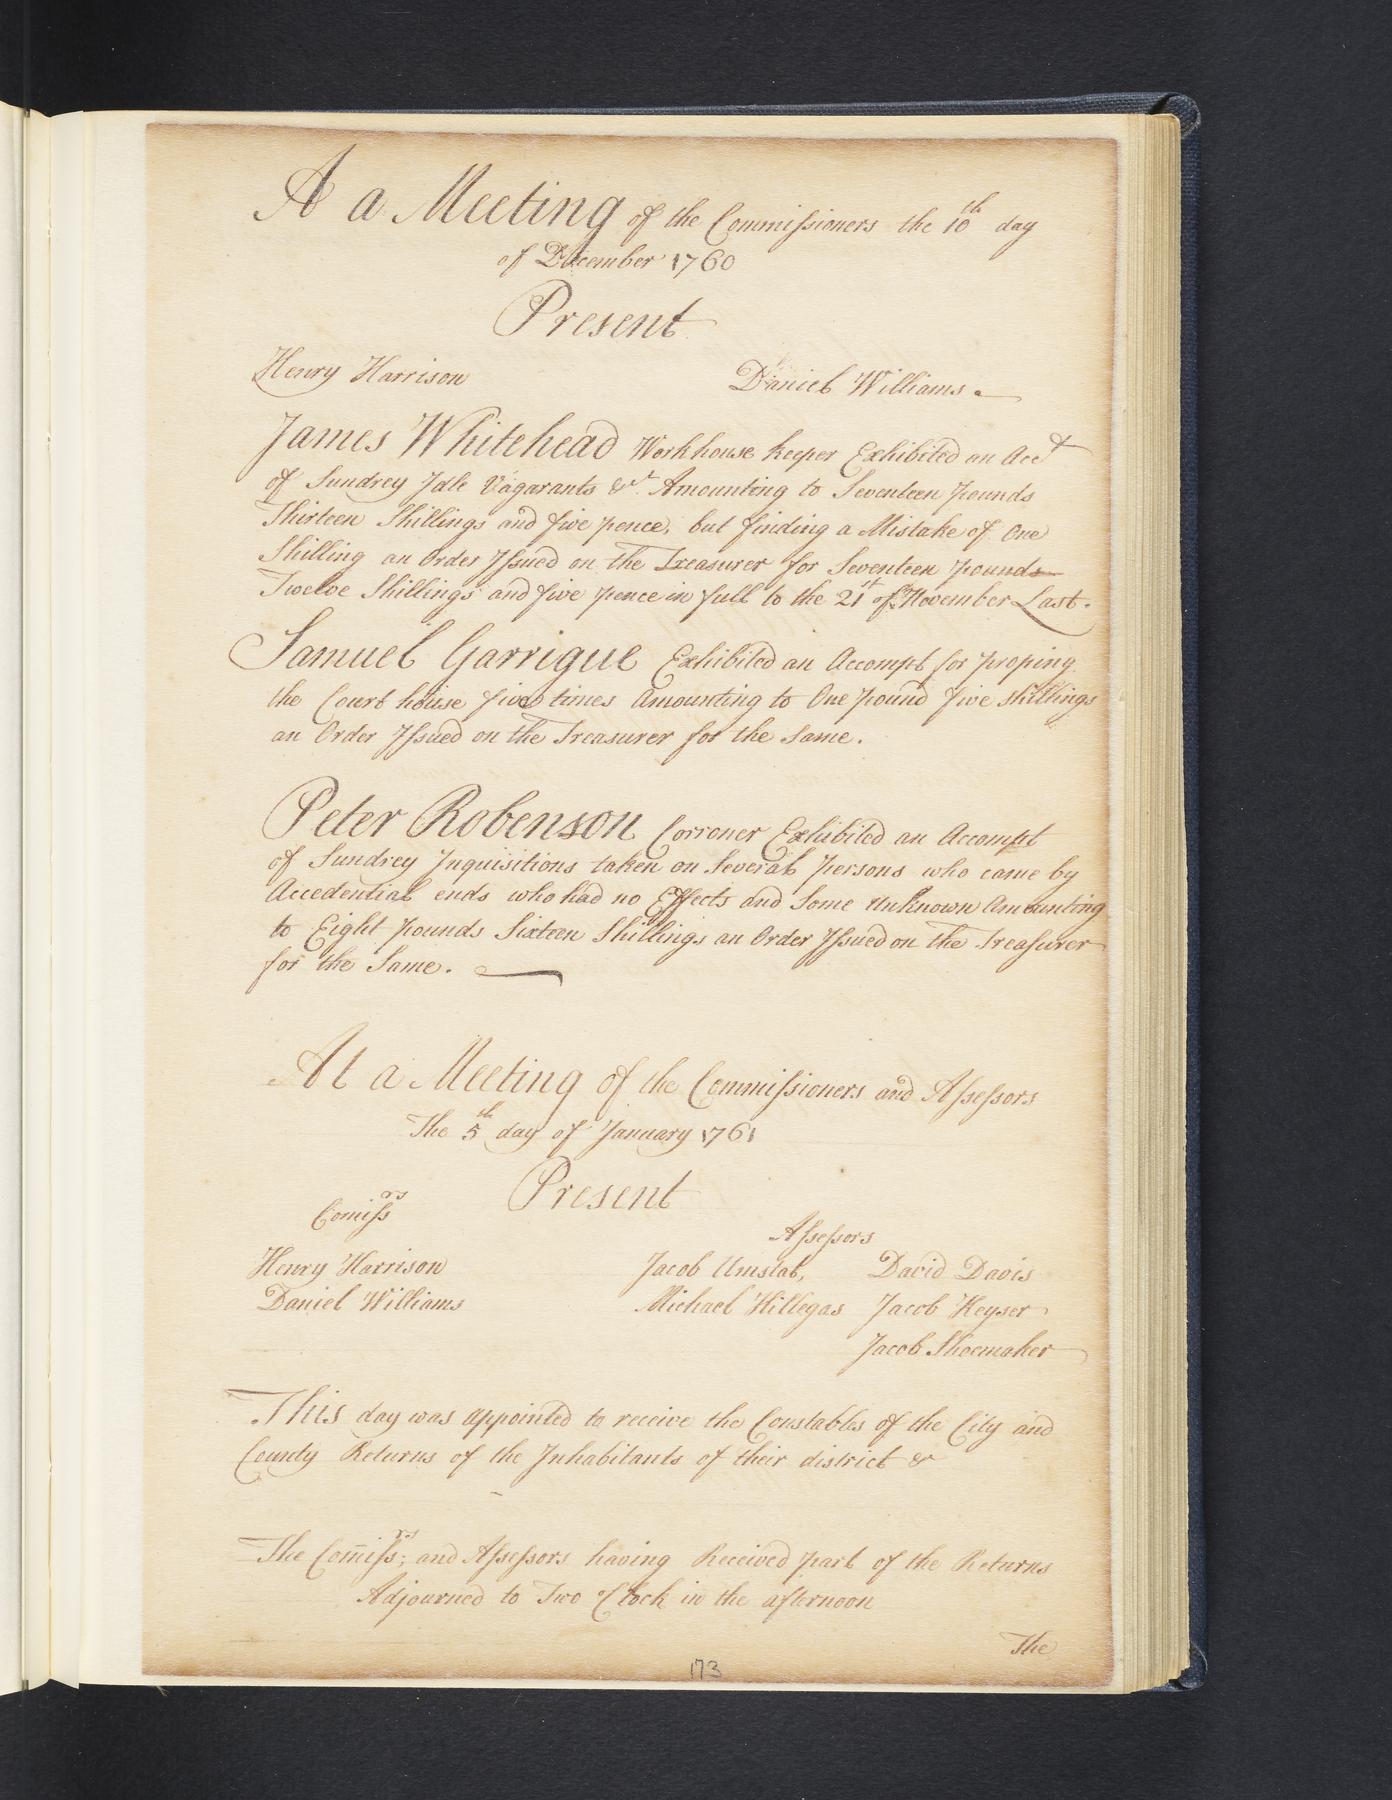 A a Meeting of the Commissioners the 10th day
of December 1760
Present
Henry Harrison Daniel Williams
James Whitehead Workhouse keeper Exhibited an Acct
of Sundrey Idle Vagarants &ct Amounting to Seventeen pounds
Thirteen Shillings and five pence, but finding a Mistake of One
Shilling an Order Issued on the Treasurer for Seventeen pounds
Twelve Shillings and five pence in full to the 21st of November Last.
Samuel Garrigue Exhibited an Accompt for proping
the Court house five times Amounting to One pound five shillings
an Order Issued on the Treasurer for the Same.
Peter Robenson Corroner Exhibited an Accompt
of Sundrey Inquisitions taken on Several persons who came by
Accedential ends who had no Effects and Some Unknown Amounting
to Eight pounds Sixteen Shillings an Order Issued on the Treasurer
for the Same.
At a Meeting of the Commissioners and Assessors
The 5th day of January 1761
Present
Comissrs
Assessors
Henry Harrison Jacob Umstab, David Davis
Daniel Williams Michael Hillegas Jacob Keyser
Jacob Shoemaker
This day was appointed to receive the Constables of the City and
County Returns of the Inhabitants of their district &
The Comissrs; and Assessors having Received part of the Returns
Adjourned to Two oClock in the afternoon
The
173